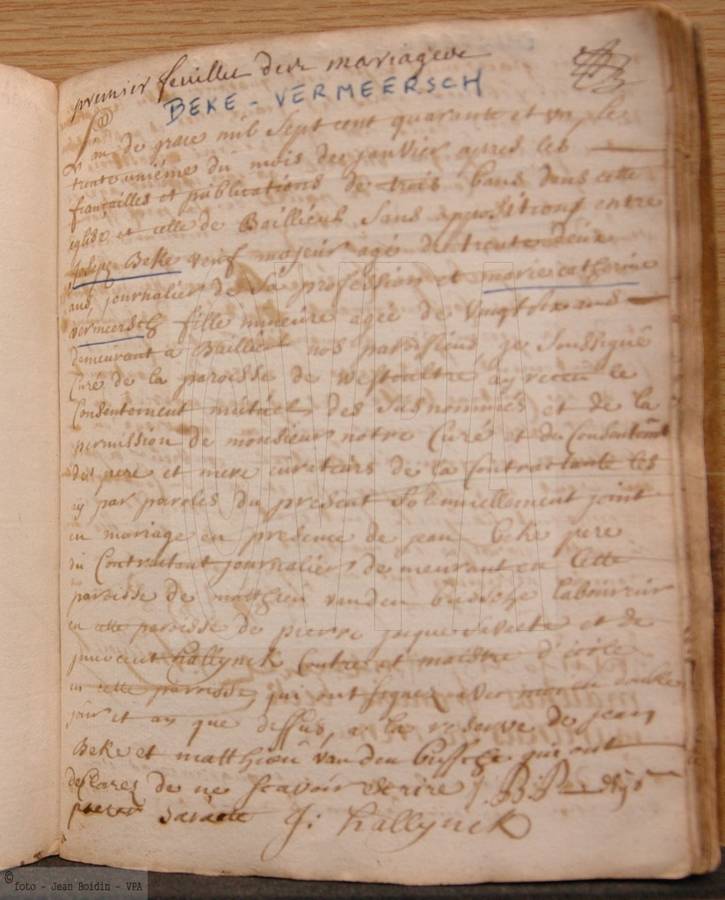 premier feuillet des mariages
BEKE - VERMEERSCH
L'an de grace mil Sept cent quarante et un, le
trente unième du mois de janvier apres les
françailles et publications de trois bans dans cette
eglise et celle de Bailliëul Sans oppositions entre
Joseph Beke veuf majeur agé de trente deux
ans, journalier de Sa profession et marie catherine
vermeersch fille mineure agée de vingt six ans
demeurant a Bailleul nos paroissiens je Soussigné
Curé de la paroisse de westoultre ay receu le
Consentement mutüel des Susnommés et de la
permission de monsieur notre Curé et du Consentement
des pere et mere curateurs de la Contractante les
ay par paroles du present Solennellement joint
en mariage en presence de jean beke pere
du Contractant journalier demeurant en cette
paroisse de matthieu vanden bussche laboureur
en cette paroisse de pierre jaque et de
innocent hallynck Contre et maistre d'école
en cette paroisse, qui ont signez avec moy a double
jour et an que dessus, a la reserve de jean
Beke et matthieu vanden bussche qui ont
declarez de ne scavoir ecrire
J: hallynck
© foto - Jean Boidin - VPA